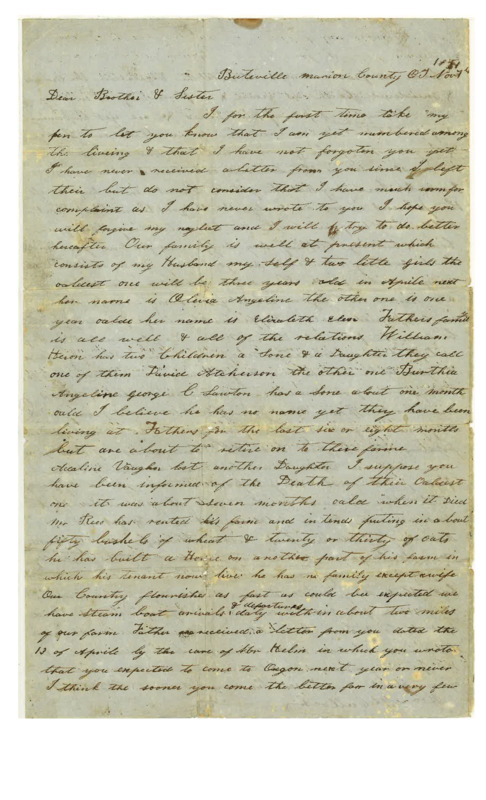 1851
Buteville Marion County O.T. Nov
Dear Brother & Sister
I for the first time take my
pen to let you know that I am yet numbered among
the liveing & that I have not forgoten you yet
I have never received a letter from you since I left
their but do not consider that I have much room for
complaint as I have never wrote to you I hope you
will forgive my neglect and I will try to do better
hereafter Our family is well at present which
consists of my Husband my self & two little Girls the
oaldest one will be three years old in Aprile next
her name is Olivia Angeline the other one is one
year oalde her name is Elizabeth Elen Fathers family
is all well & all of the relations William
has two Children a Sone & a Daughter they call
one of them David Atcherson the other one Burthia
Angeline George C Lawton has a Sone about one month
oald I believe he has no name yet they have been
living at Fathers for the last six or eight months
but are about to retire on to there farme
Adaline Vaughn lost another Daughter I suppose you
have been informed of the Death of their Oaldest
one it was about seven months oald when it died
Mr has rented his farm and intends puting in about
fifty bushels of wheat & twenty or thirty of oats
he has built a House on another part of his farm in
which his tenant now live he has no family except wife
Our Country flourishes as fast as could be expected we
have Steam boat arivals & departures daly with in about two miles
of our farm Father received a letter from you dated the
13 of Aprile by the care of Mr Helm in which you wrote
that you expected to come to Oregon next year or never
I think the sooner you come the better for in a very few